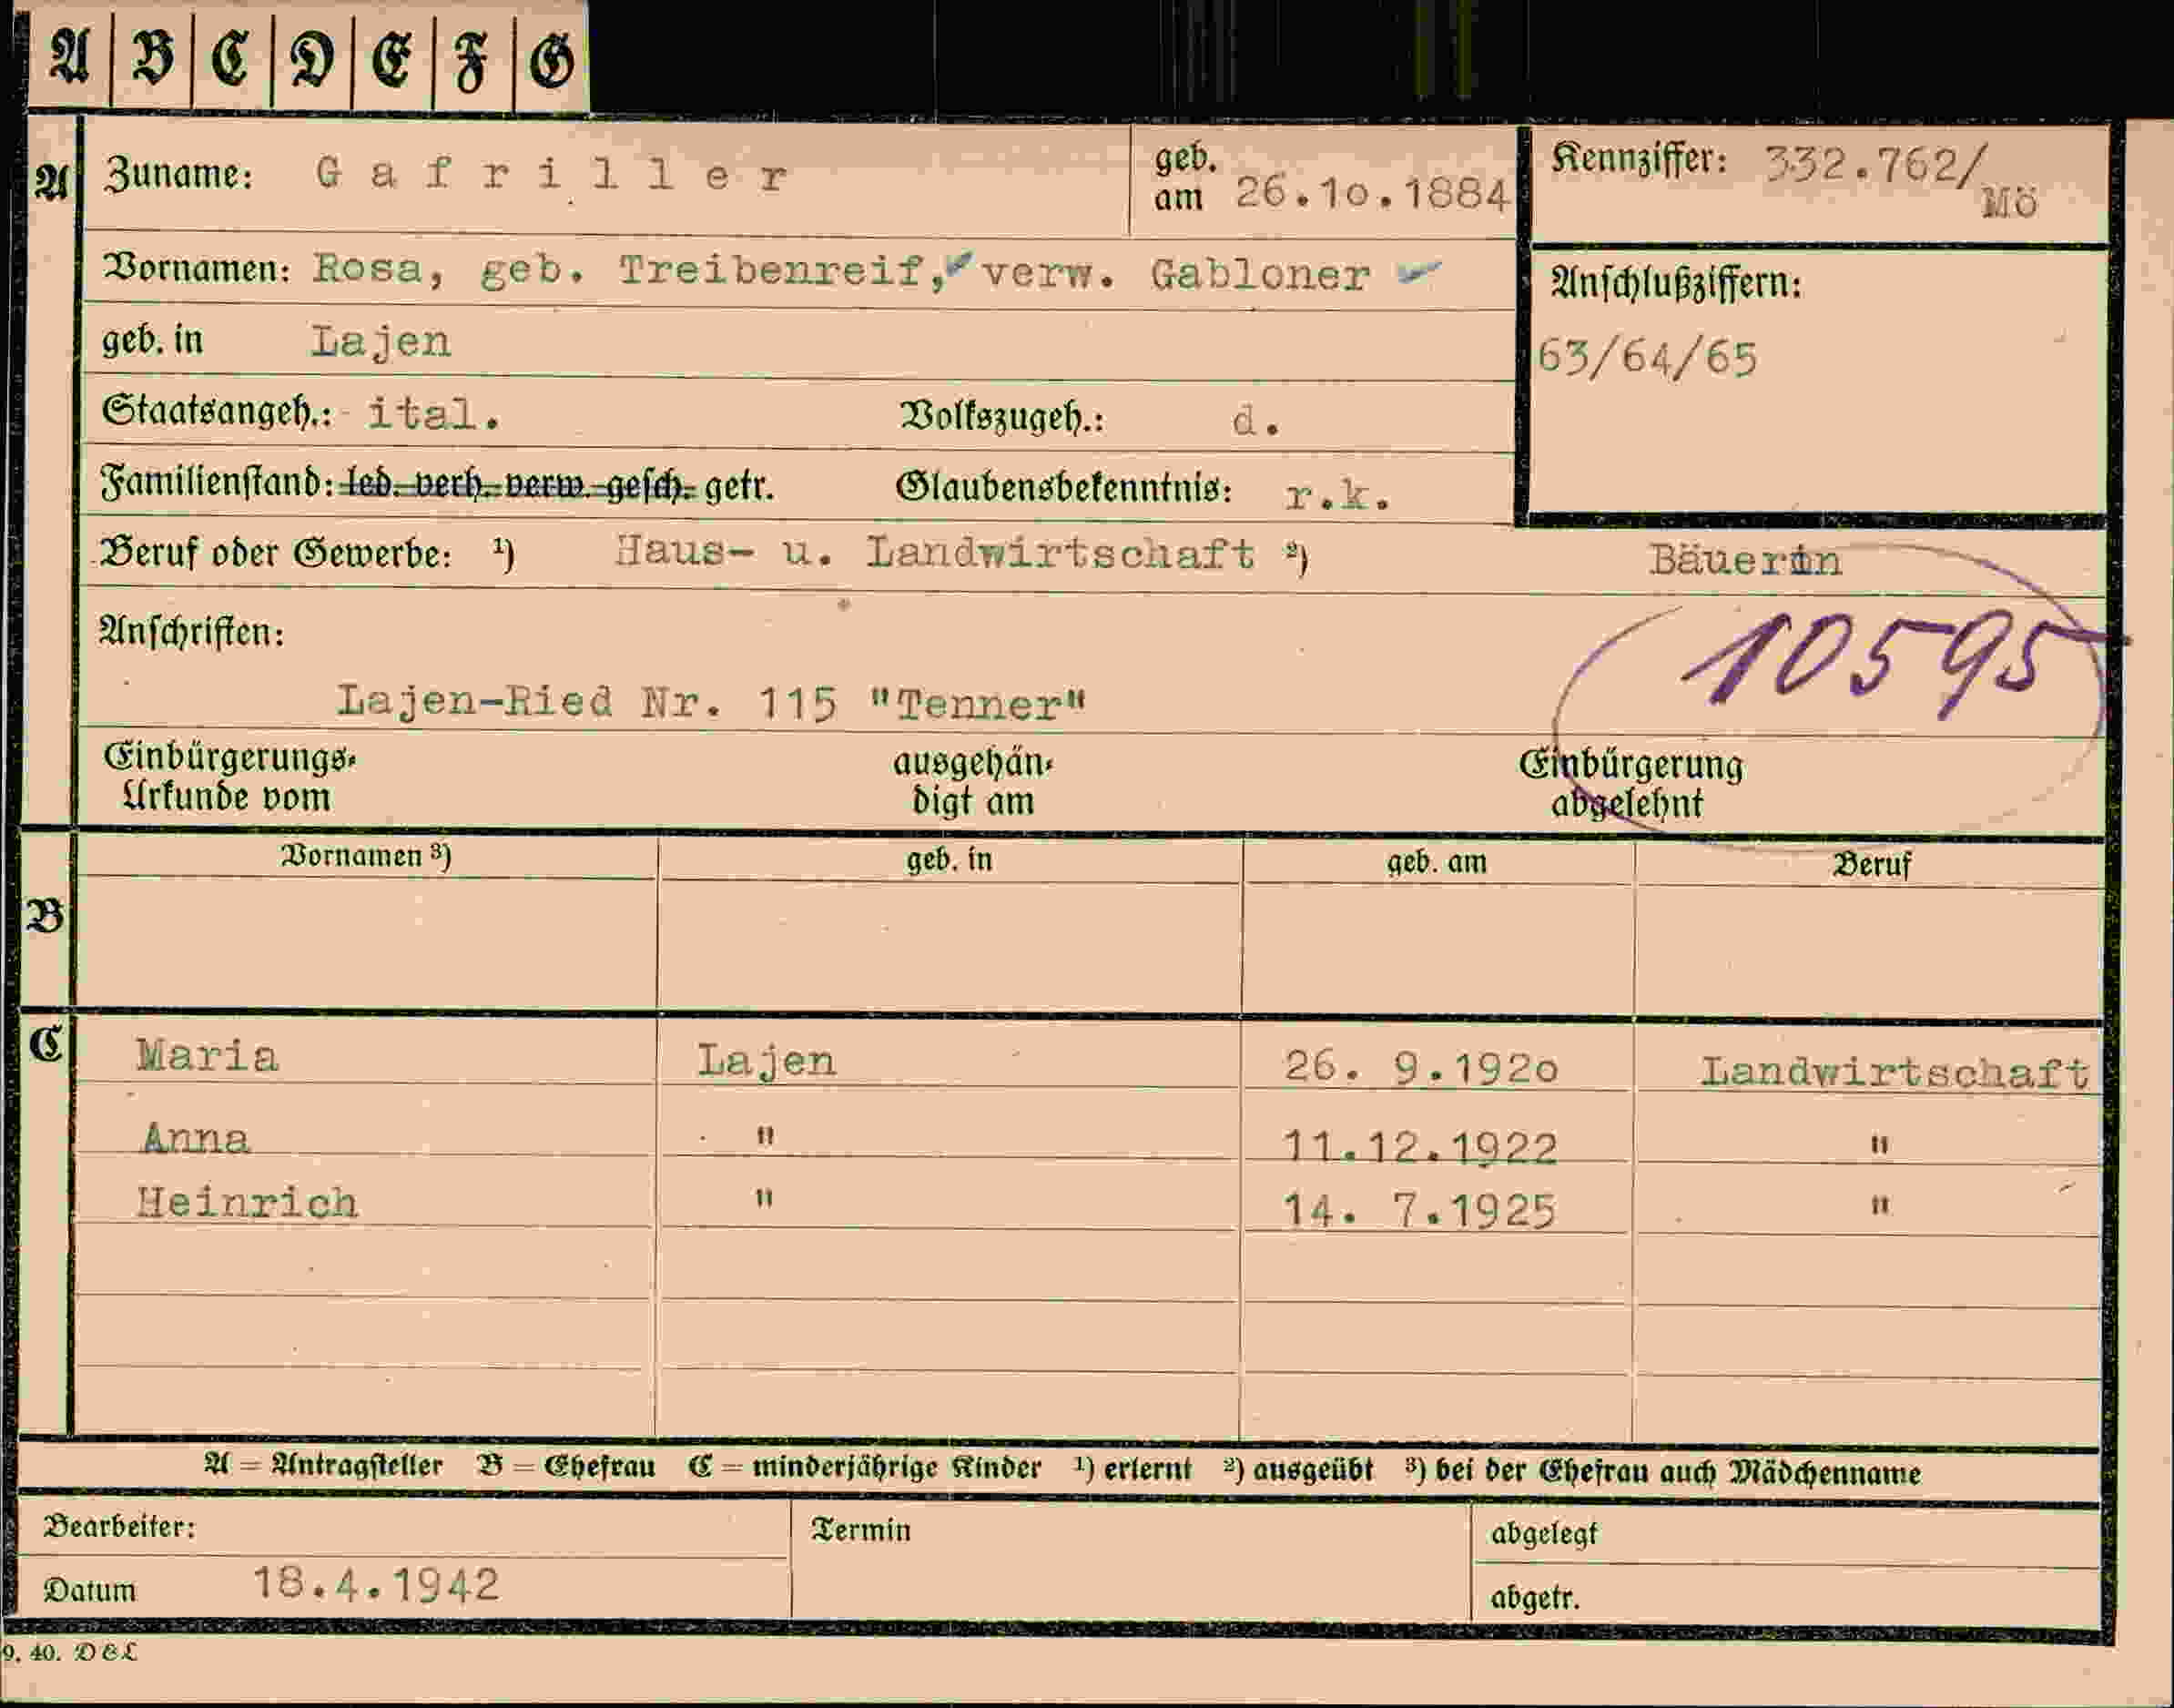 A B C D E F G
A Zuname: Gafriller geb. am 26.10.1884 Kennziffer: 332.762/Mö
Vornamen: Rosa, geb. Treibenreif, verw. Gabloner
Anschlußziffern:
geb. in Lajen
63/64/65
Staatsangeh.: ital. Volkszugeh.: d.
Familienstand: led. verh. verw. gesch. getr. Glaubensbekenntnis: r.k.
Beruf oder Gewerbe: ¹) Haus- u. Landwirtschaft ²) Bäuerin
Anschriften:
10595
Lajen-Ried Nr. 115 "Tenner"
Einbürgerungs-Urkunde vom ausgehändigt am Einbürgerung abgelehnt
Vornamen ³) geb. in geb. am Beruf
B
C Maria Lajen 26. 9.1920 Landwirtschaft
Anna " 11.12.1922 "
Heinrich " 14. 7.1925 "
A = Antragsteller B = Ehefrau C = minderjährige Kinder ¹) erlernt ²) ausgeübt ³) bei der Ehefrau auch Mädchenname
Bearbeiter: Termin abgelegt
Datum 18.4.1942 abgetr.
9. 40. D&L